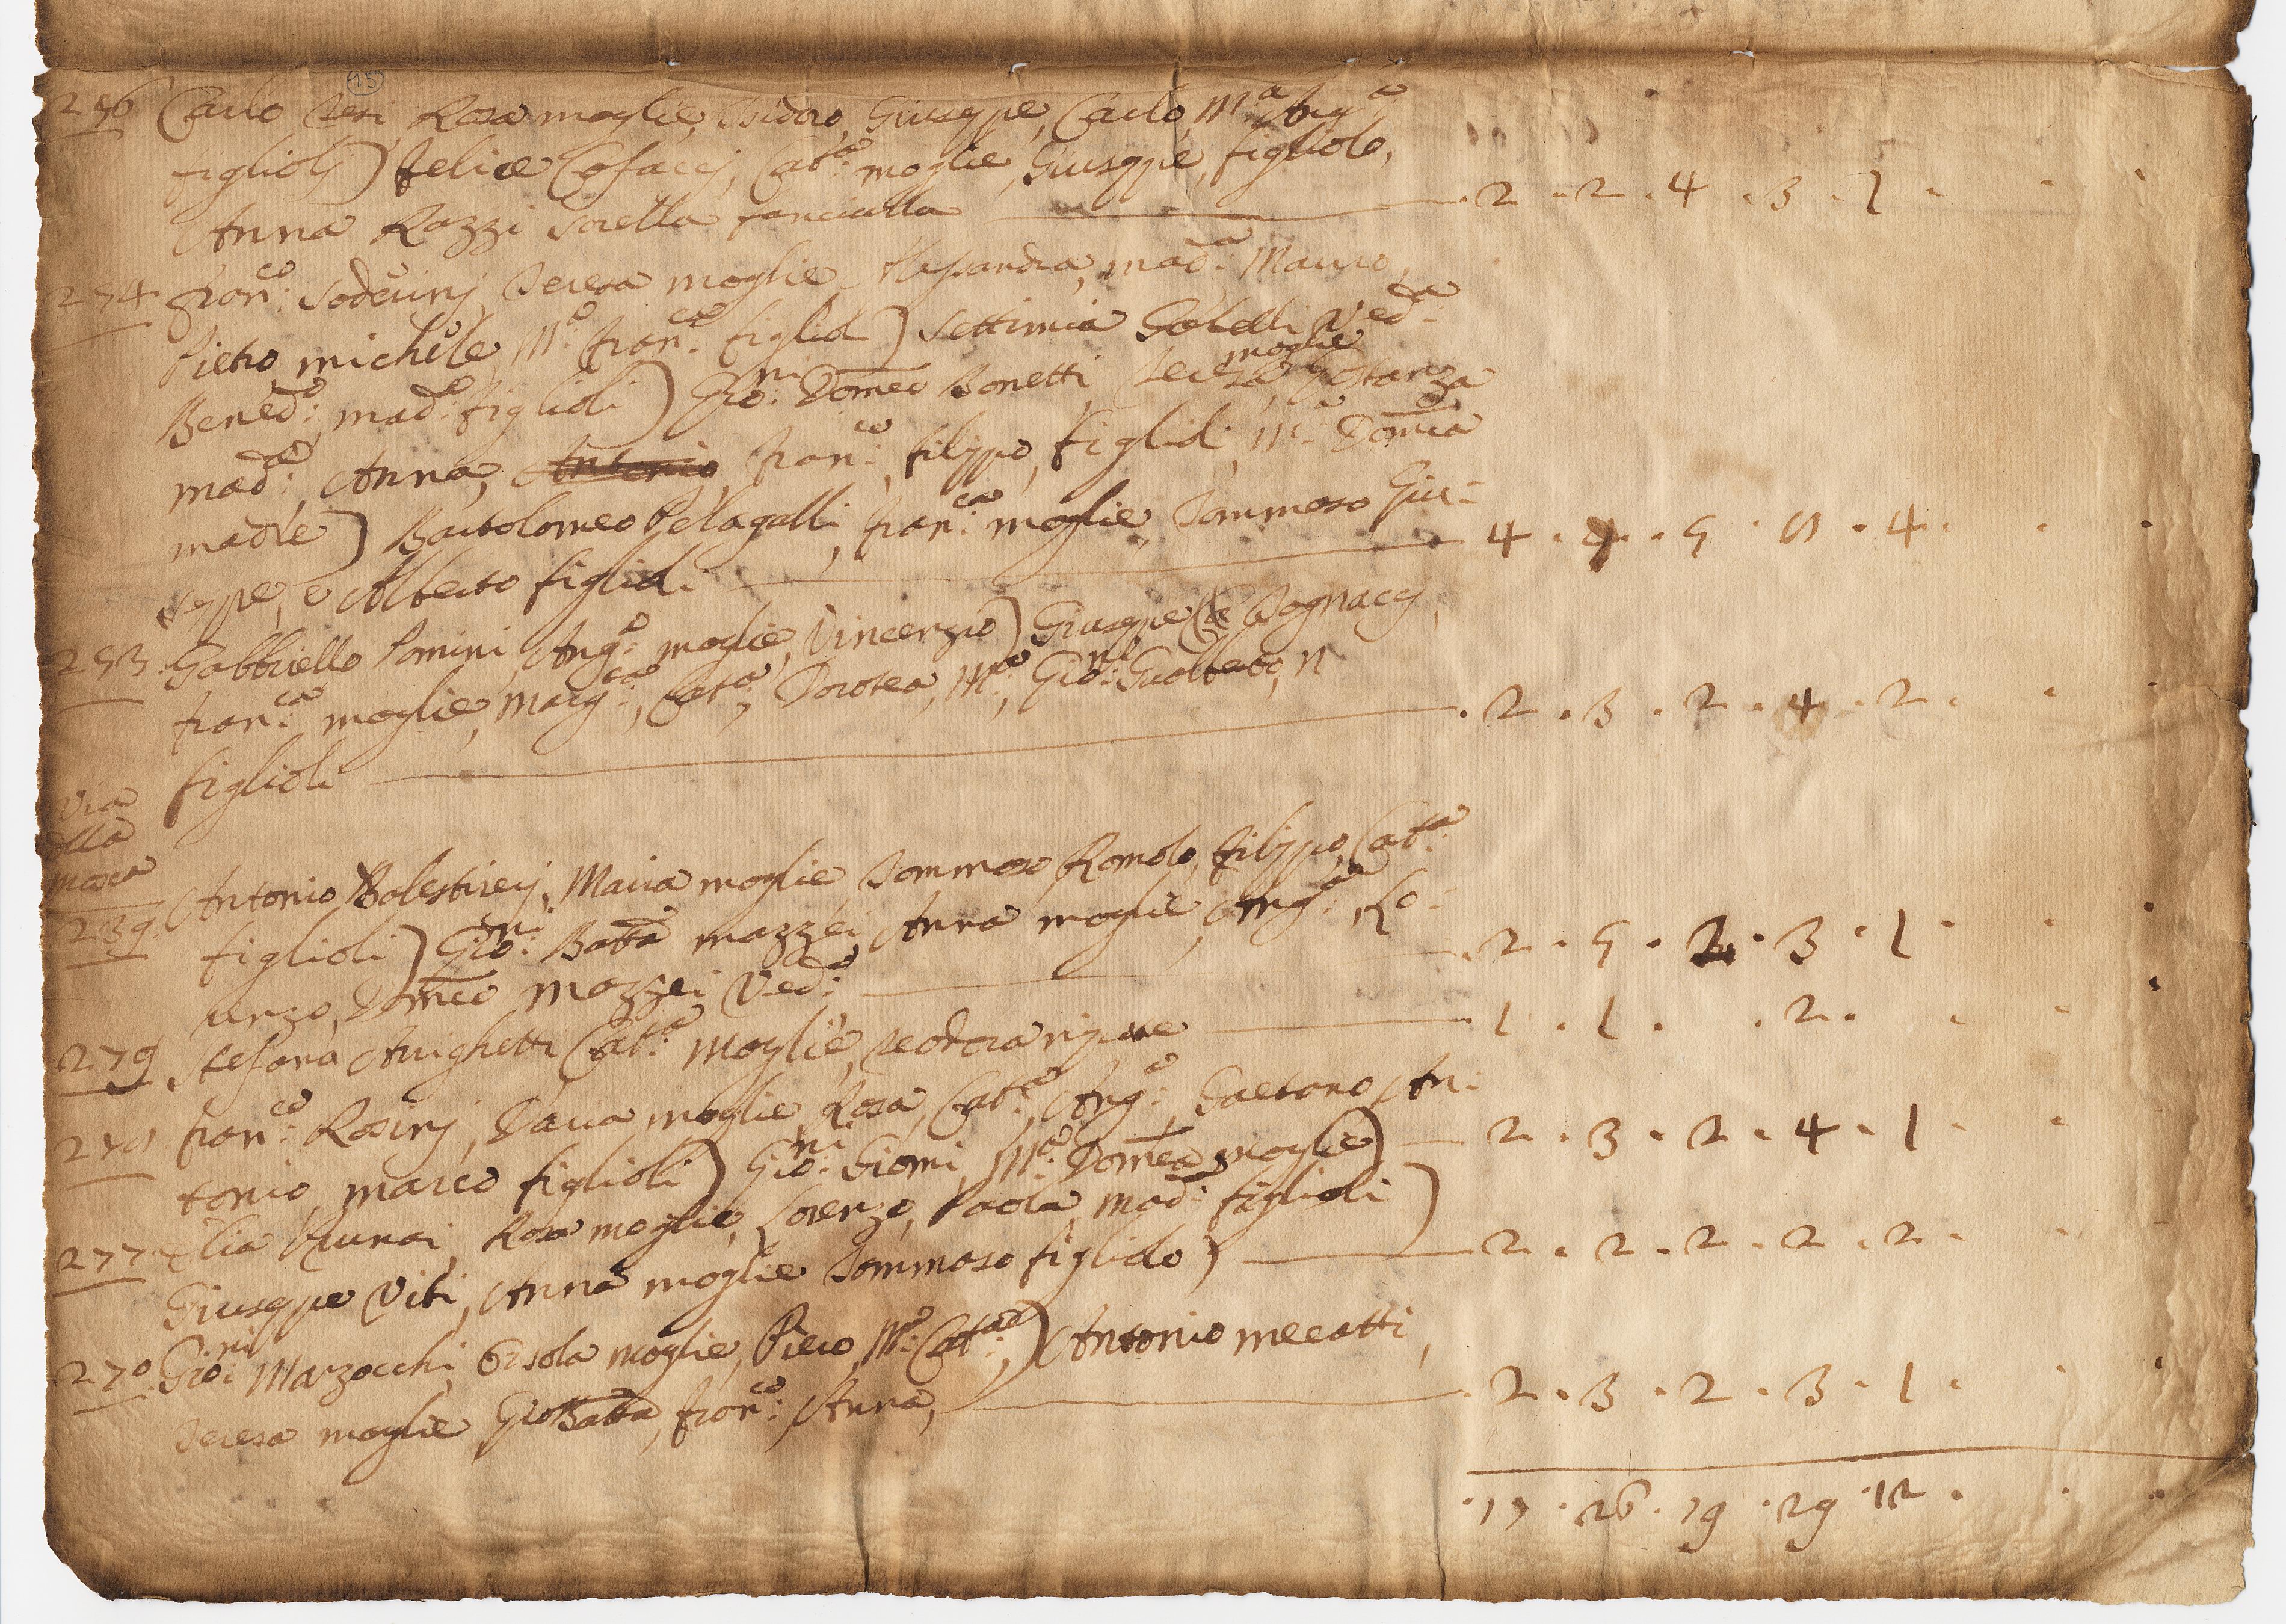 25
256 Carlo Resi Rosa moglie, Isidoro, Giuseppe, Carlo, M.a Ang.a
figliolj) felice Cofaccj, Cat.a moglie, Giuseppe, figliolo,
Anna Razzi sorella fanciulla . 2 . 2 . 4 . 3 . 1 .
254 fran.co Soderinj Teresa moglie Alessandra, mad.a Mauro,
Pietro michele M.a fran.ca figlioli) Settimia Ved.a
Bened.o mad.a figlioli) Gio.ni Dom̃eo Bonetti, Teresa moglie Gostanza
mad.a, Anna, Antonio fran.co, filippo, figlioli, M.a Dom̃ca
madre) Bartolomeo Pelagalli, fran.ca moglie, Tommaso Giu-
seppe, e Alberto figlioli 4 . 4 . 5 . 6 . 4 .
253 Gabbriello Pomini, Ang.a moglie, Vincenzio) Giuseppe Tognaccj,
fran.ca moglie, Marg.ta, Cat.a, Dorotea, M.a, Gio.ni Gualberto, N
figlioli . 2 . 3 . 2 . 4 . 2 .
Via
dlla
mosca
239 Antonio Balestrierj, Maria moglie Tommaso, Romolo, filippo, Cat.a
figlioli) Gio.ni Batta mazzei, Anna moglie, Ang.a, Lo-
. 2 . 5 . 2 . 3 . 1 .
unzo, Dom̃co Mazzei Ved.o
279 Stefano Arrighetti Cat.a moglie, Teodora nipote . 1 . 1 . . 2 .
278 fran.co Rosinj, Daria moglie, Rosa, Cat.a, Ang.a, Gaetano, An-
tonio, marco figlioli) Gio.ni Giomi, M.a Dom̃ca moglie) 2 . 3 . 2 . 4 . 1 .
277 Elia Rosa moglie, Lorenzo, Paola, mad.a figlioli)
Giuseppe Viti, Anna moglie Tommaso figliolo) . 2 . 2 . 2 . 2 . 2 .
270 Gio.ni Marzocchi, Orsola moglie, Piero, M.a Cat.a,) Antonio mecatti,
Teresa moglie, Gio Batta, fran.co, Anna, . 2 . 3 . 2 . 3 . 1 .
. 17 . 26 . 19 . 29 . 12 .